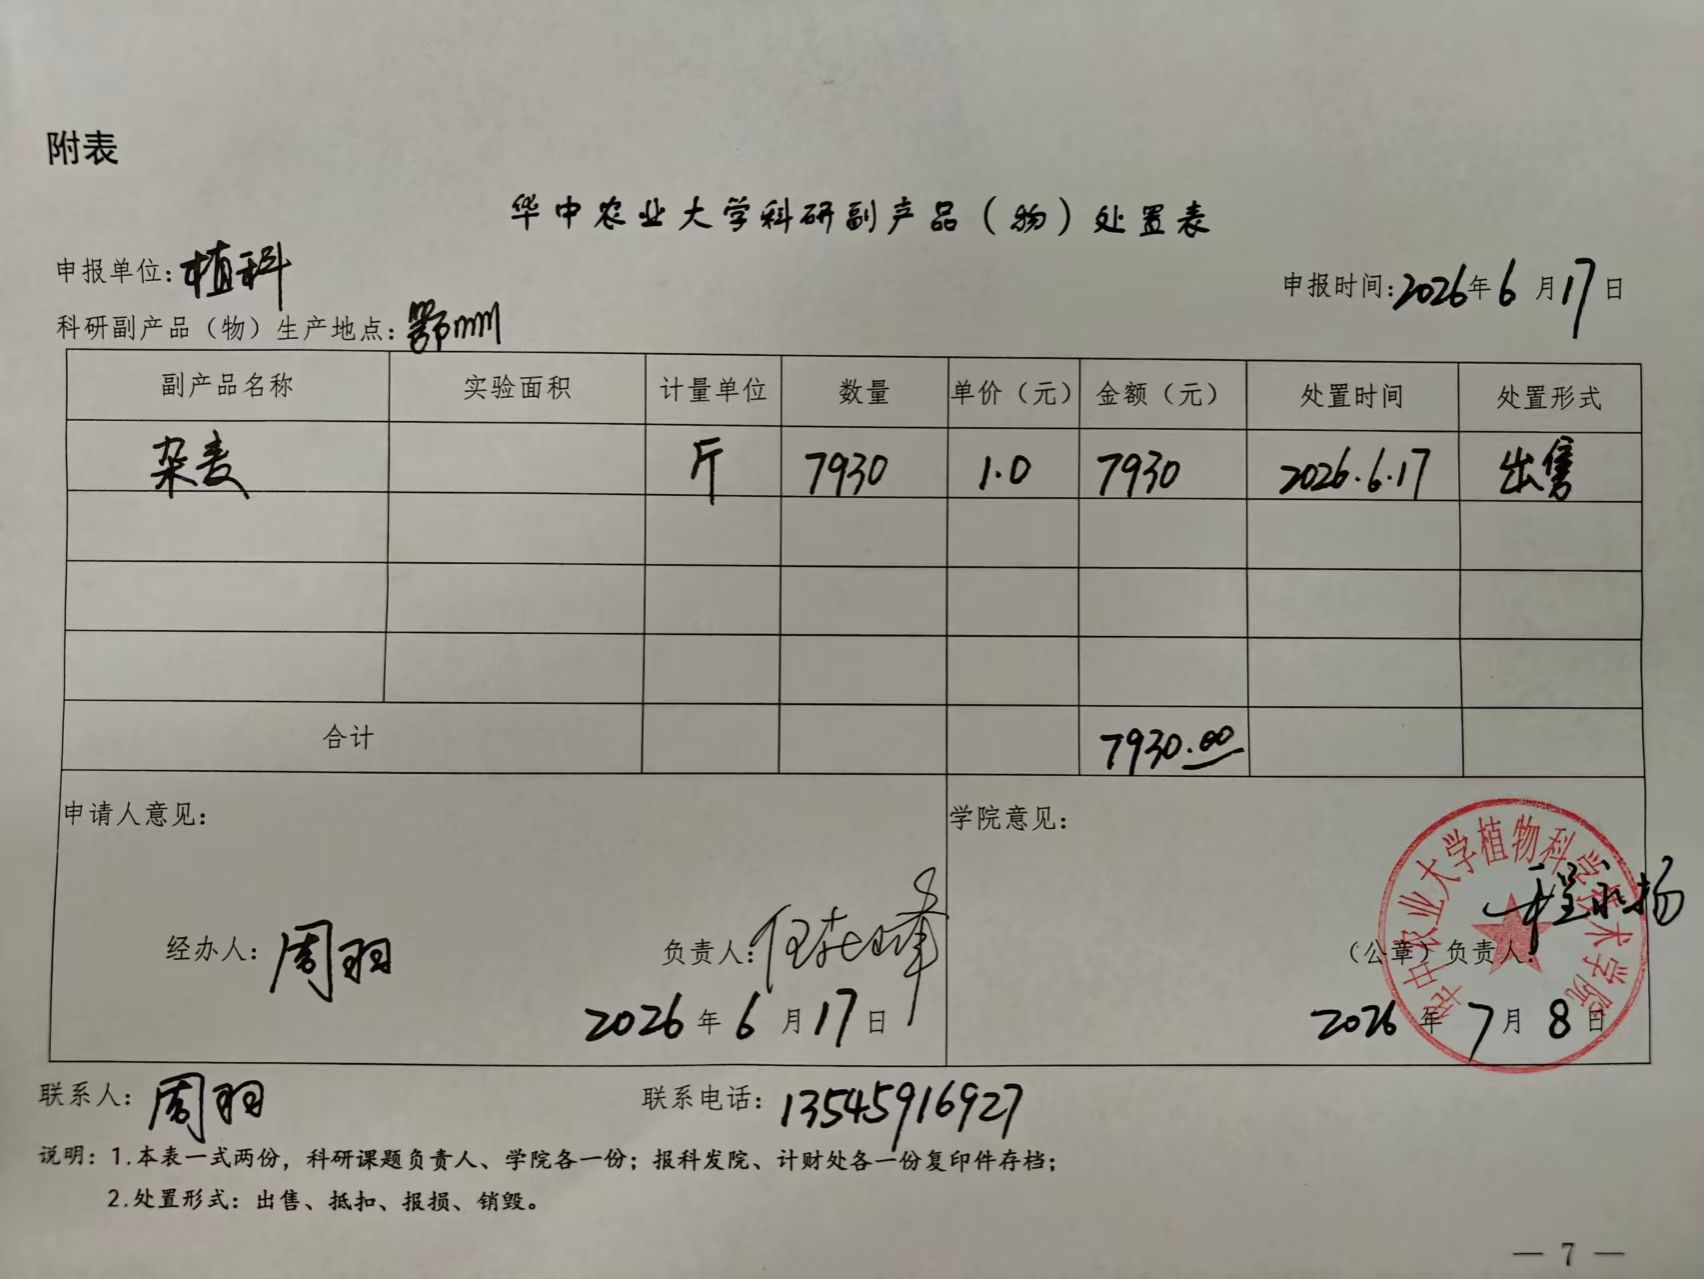 附表
华中农业大学科研副产品（物）处置表
申报单位：植科
申报时间：2026年6月17日
科研副产品（物）生产地点：鄂州
副产品名称 实验面积 计量单位 数量 单价（元） 金额（元） 处置时间 处置形式
杂麦 斤 7930 1.0 7930 2026.6.17 出售
合计 7930.00
申请人意见： 学院意见：
华中农业大学植物科学技术学院
程永扬
经办人：周羽 负责人： （公章）负责人：
2026年6月17日 2026年7月8日
联系人：周羽 联系电话：13545916927
说明：1.本表一式两份，科研课题负责人、学院各一份；报科发院、计财处各一份复印件存档；
2.处置形式：出售、抵扣、报损、销毁。
— 7 —